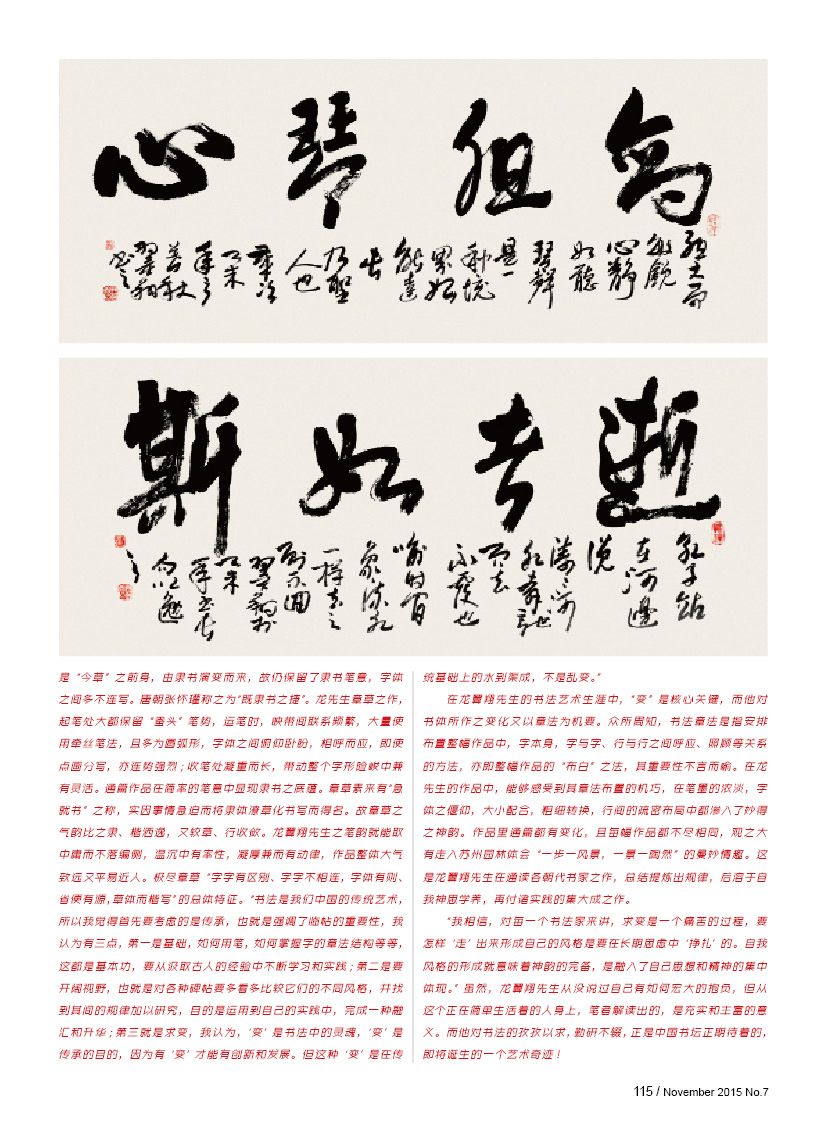 心 琴 胆 剑
斯 如 者 逝
是“今草”之前身，由隶书演变而来，故仍保留了隶书笔意，字体
之间多不连写。唐朝张怀瓘称之为“既隶书之捷”。龙先生章草之作，
起笔处大都保留“蚕头”笔势，运笔时，映带间联系频繁，大量使
用牵丝笔法，且多为圆弧形，字体之间俯仰卧盼，相呼而应，即使
点画分写，亦连势强烈；收笔处凝重而长，带动整个字形险峻中兼
有灵活。通篇作品在简率的笔意中显现隶书之底蕴。章草素来有“急
就书”之称，实因事情急迫而将隶体潦草化书写而得名。故章草之
气韵比之隶、楷洒逸，又较草、行收敛。龙翼翔先生之笔韵就能取
中庸而不落编侧，温沉中有率性，凝厚兼而有动律，作品整体大气
致远又平易近人。极尽章草“字字有区别、字字不相连，字体有则、
省便有源，草体而楷写”的总体特征。“书法是我们中国的传统艺术，
所以我觉得首先要考虑的是传承，也就是强调了临帖的重要性，我
认为有三点，第一是基础，如何用笔，如何掌握字的章法结构等等，
这都是基本功，要从汲取古人的经验中不断学习和实践；第二是要
开阔视野，也就是对各种碑帖要多看多比较它们的不同风格，并找
到其间的规律加以研究，目的是运用到自己的实践中，完成一种融
汇和升华；第三就是求变，我认为，‘变’是书法中的灵魂，‘变’是
传承的目的，因为有‘变’才能有创新和发展。但这种‘变’是在传
统基础上的水到渠成，不是乱变。”
在龙翼翔先生的书法艺术生涯中，“变”是核心关键，而他对
书体所作之变化又以章法为机要。众所周知，书法章法是指安排
布置整幅作品中，字本身，字与字、行与行之间呼应、照顾等关系
的方法，亦即整幅作品的“布白”之法，其重要性不言而喻。在龙
先生的作品中，能够感受到其章法布置的机巧，在笔墨的浓淡，字
体之偃仰，大小配合，粗细转换，行间的疏密布局中都渗入了妙得
之神韵。作品里通篇都有变化，且每幅作品都不尽相同，观之大
有走入苏州园林体会“一步一风景，一景一陶然”的曼妙情趣。这
是龙翼翔先生在通读各朝代书家之作，总结提炼出规律，后溶于自
我神思学养，再付诸实践的集大成之作。
“我相信，对每一个书法家来讲，求变是一个痛苦的过程，要
怎样‘走’出来形成自己的风格是要在长期思虑中‘挣扎’的。自我
风格的形成就意味着神韵的完备，是融入了自己思想和精神的集中
体现。”虽然，龙翼翔先生从没说过自己有如何宏大的抱负，但从
这个正在简单生活着的人身上，笔者解读出的，是充实和丰富的意
义。而他对书法的孜孜以求，勤研不辍，正是中国书坛正期待着的，
即将诞生的一个艺术奇迹！
115 / November 2015 No.7